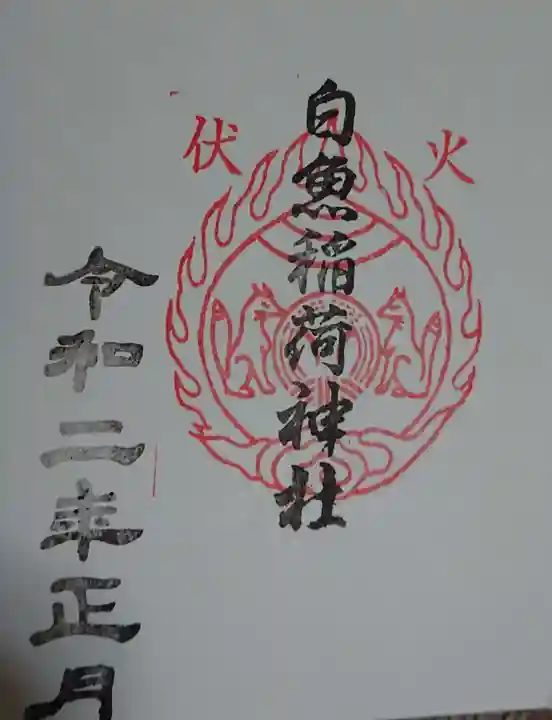 火伏
白魚稲荷神社
令和二年正月